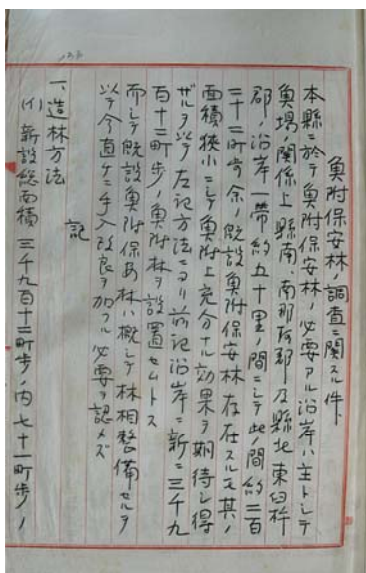 魚附保安林ノ調査ニ関スル件
本縣ニ於テ魚附保安林ノ必要アル沿岸ハ主トシテ
魚場ノ関係上縣南、南那珂郡及縣北東臼杵
郡ノ沿岸一帯約五十里ノ間ニシテ此ノ間約二百
二十二町歩余ノ既設魚附保安林存在スルモ其ノ
面積狭小ニシテ魚附上充分ナル効果ヲ期待シ得
ザルヲ以テ左記方法ニヨリ前記沿岸ニ新ニ三千九
百十二町歩ノ魚附林ヲ設置セムトス
而シテ既設魚附保安林ハ概シテ林相整備セルヲ
以テ今直ケニ手入改良ヲ加フル必要ヲ認メズ
記
一、造林方法
(1) 新設総面積 三千九百十二町歩ノ内七十一町歩ノ